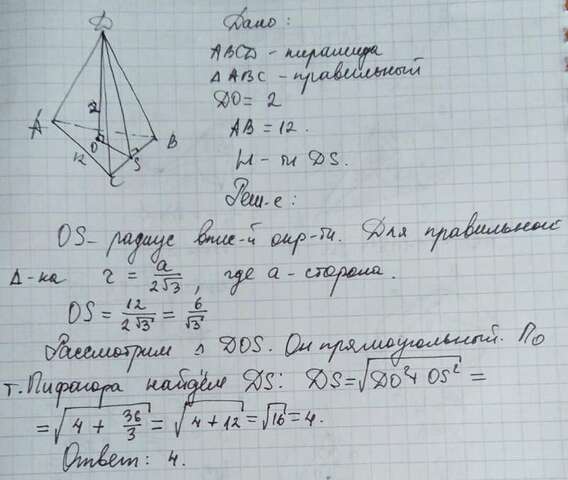 Дано:
ABCD - пирамида
ΔABC - правильный
DO = 2
AB = 12.
Н-ти DS.
Реш-е:
D
2
A
B
O
12
S
C
OS - радиус впис-й окр-ти. Для правильного
Δ-ка r = a/(2√3), где a - сторона.
OS = 12/(2√3) = 6/√3
Рассмотрим Δ DOS. Он прямоугольный. По
т. Пифагора найдём DS: DS = √(DO² + OS²) =
= √(4 + 36/3) = √(4 + 12) = √16 = 4.
Ответ: 4.